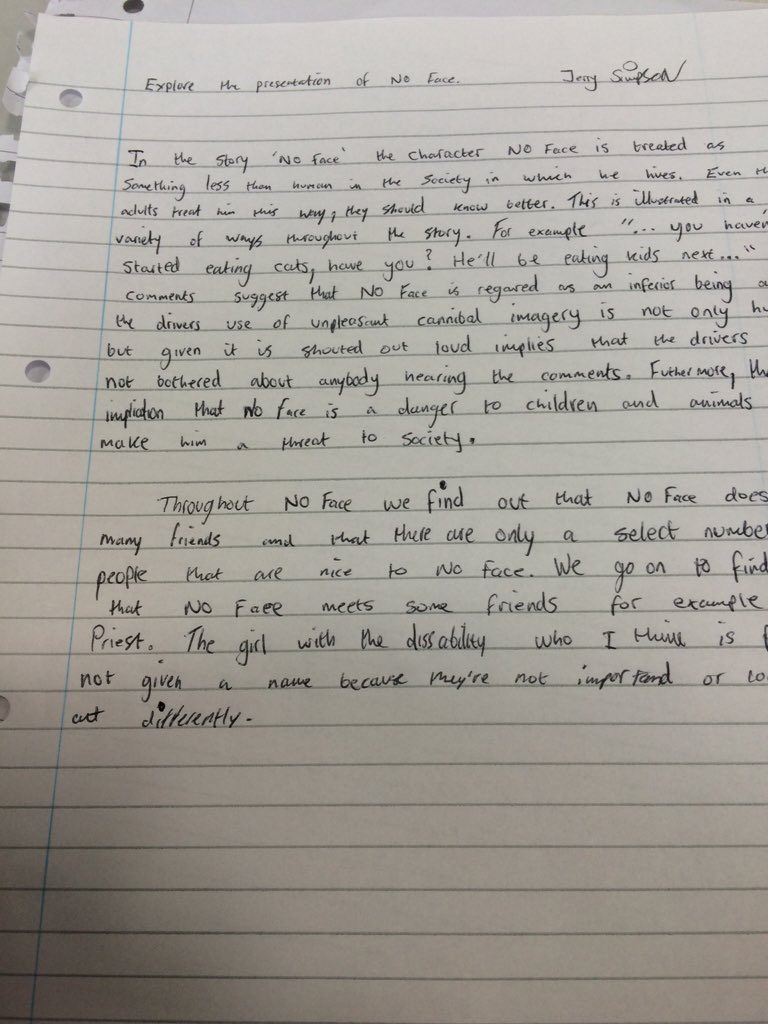 Explore the presentation of No Face. Jerry Simpson
In the story 'No Face' the character No Face is treated as
something less than human in the society in which he lives. Even
adults treat him this way, they should know better. This is illustrated in a
variety of ways throughout the story. For example "... you haven
started eating cats, have you? He'll be eating kids next..."
comments suggest that No Face is regared as an inferior being
the drivers use of unpleasant cannibal imagery is not only
but given it is shouted out loud implies that the drivers
not bothered about anybody hearing the comments. Futhermore,
impliation that No Face is a danger to children and animals
make him a threat to society.
Throughout No Face we find out that No Face does
many friends and that there are only a select number
people that are nice to No Face. We go on to find
that No Face meets some friends for example
Priest. The girl with the dissability who I think is
not given a name because they're not important or
differently.